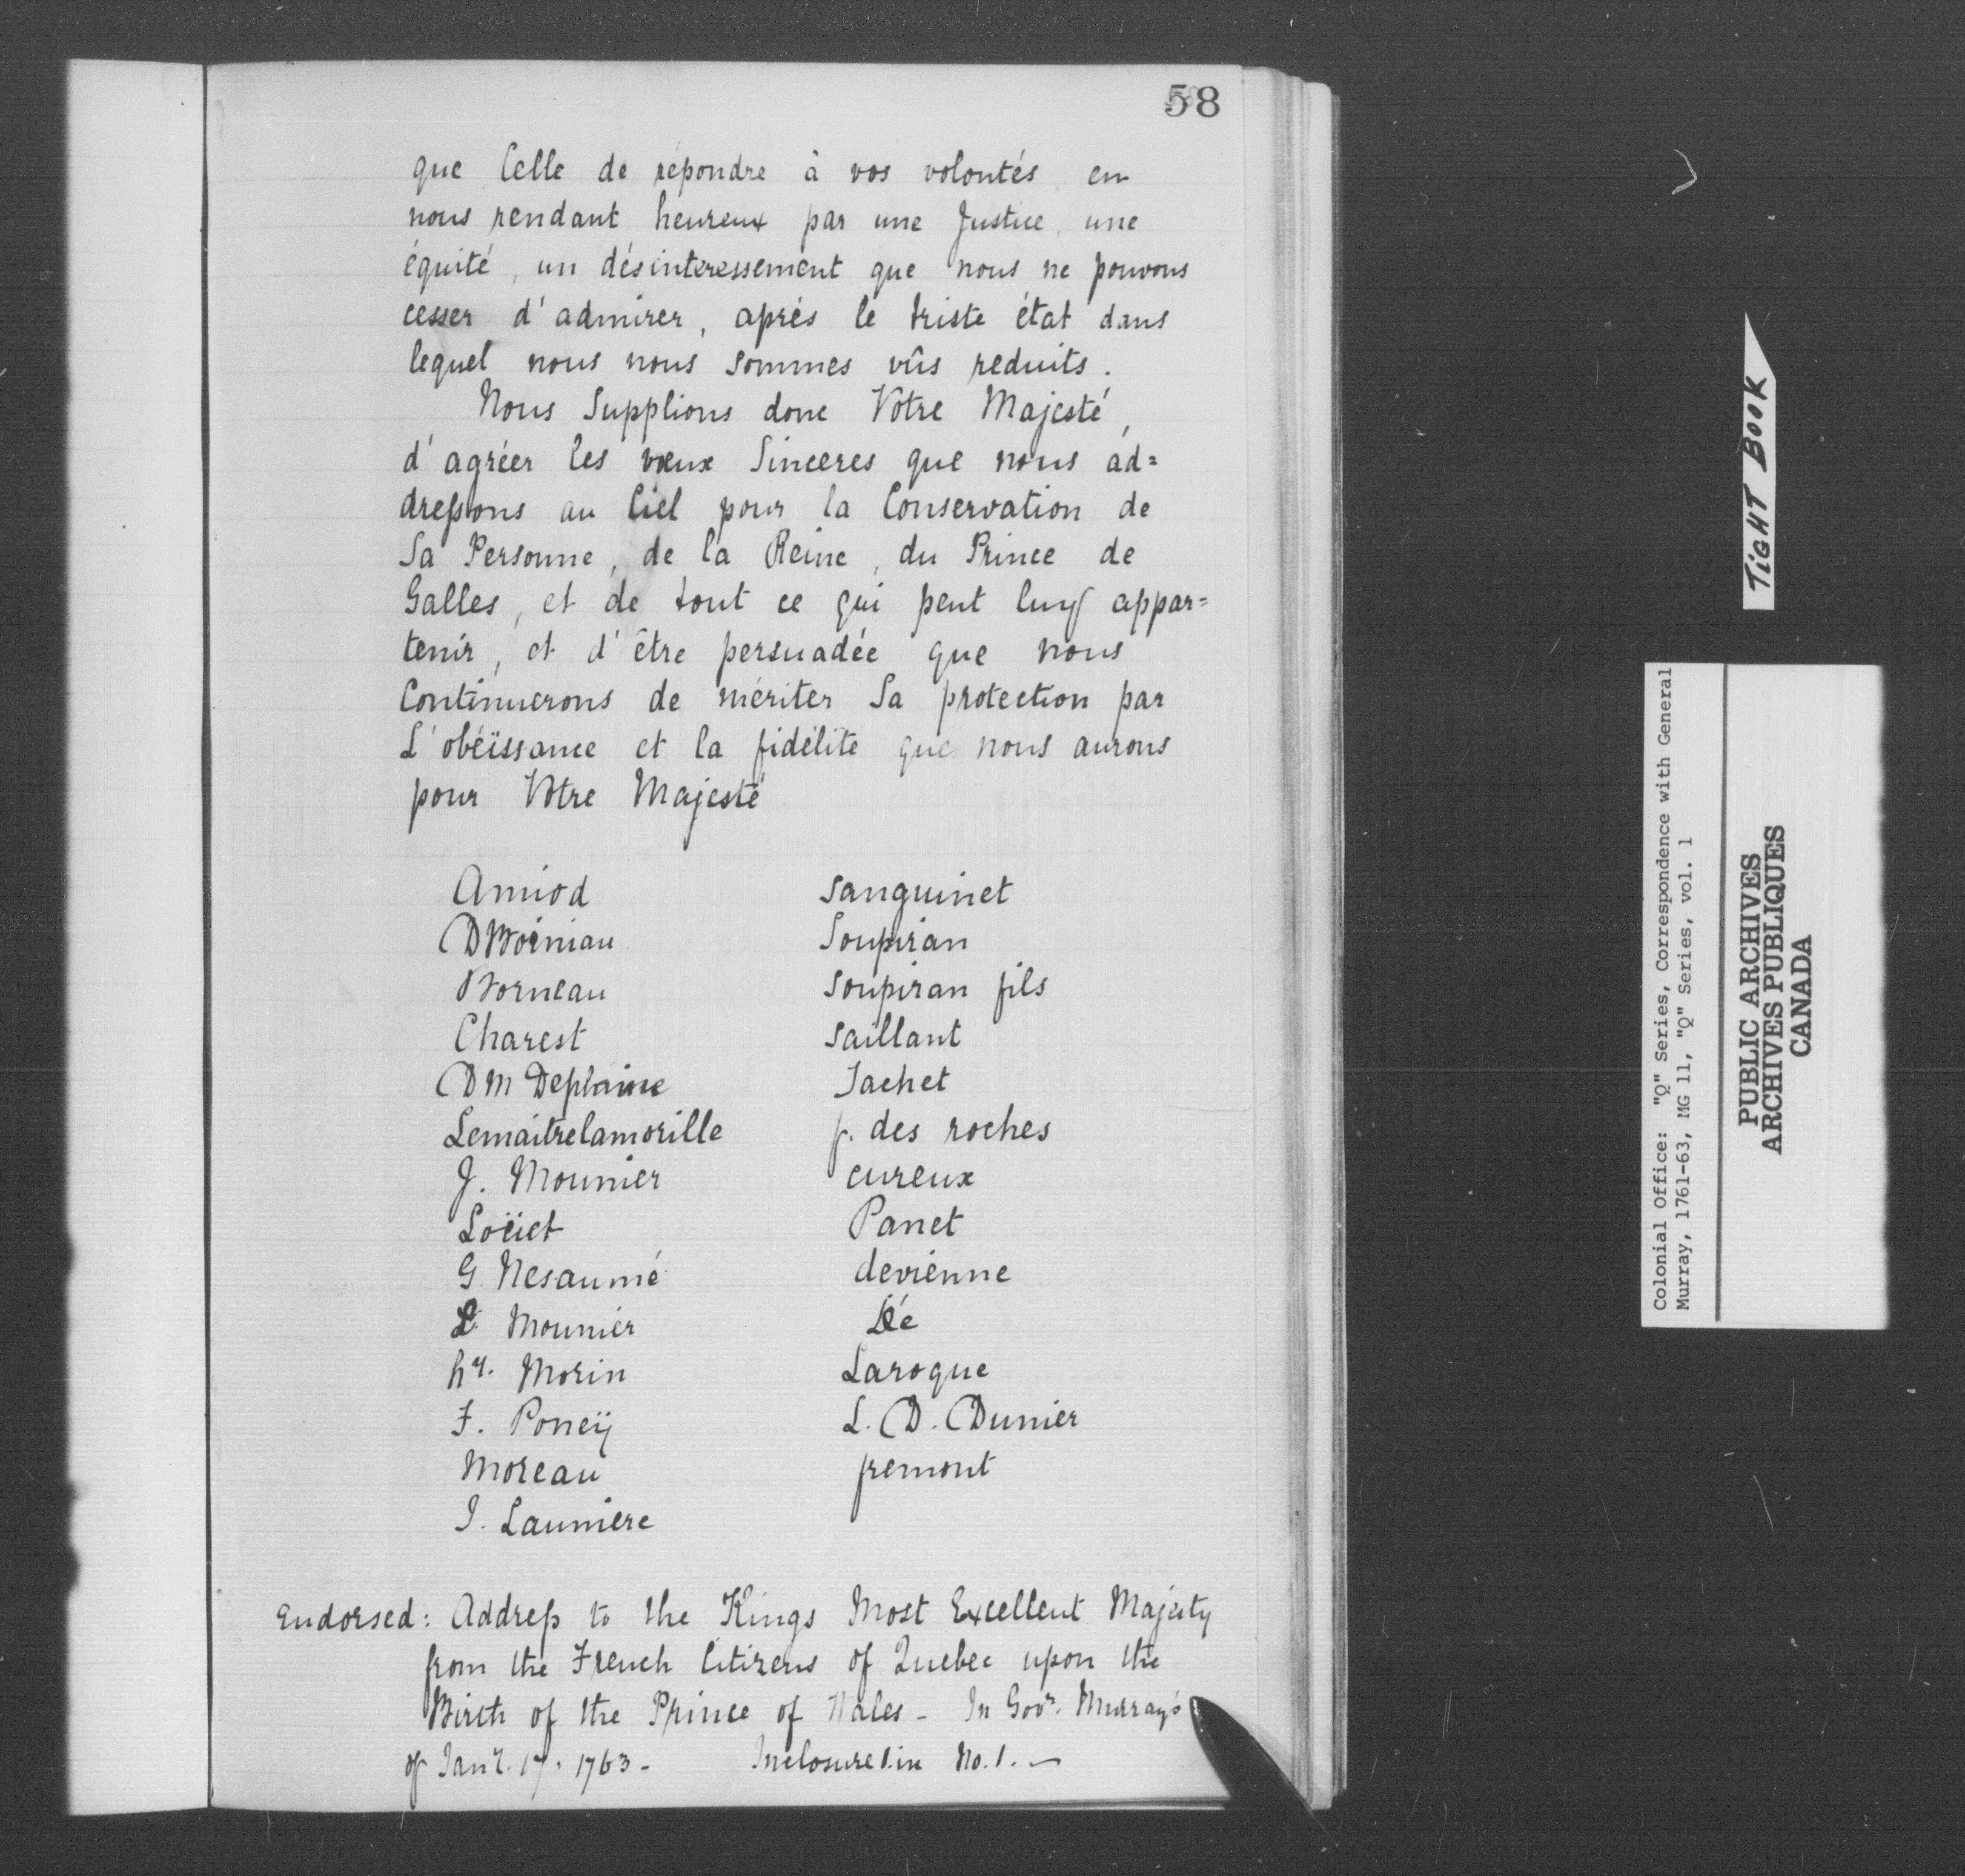 58
que Celle de répondre à vos volontés en
nous rendant heureux par une Justice, une
équité, un désinteressement que nous ne pouvons
cesser d'admirer, aprés le triste état dans
lequel nous nous sommes vûs reduits.
Nous Supplions donc Votre Majesté,
d'agréer les vœux Sinceres que nous ad=
dreſsons au Ciel pour la Conservation de
Sa Personne, de la Reine, du Prince de
Galles, et de tout ce qui peut luy appar=
tenir, et d'être persuadée que nous
Continuerons de mériter Sa protection par
L'obéïssance et la fidélité que nous aurons
pour Votre Majesté
Amiod
Borneau
Charest
DM Deplaine
Lemaitrelamorille
J. Mounier
Loëiet
G Nesaumé
L Mounier
hy. Morin
F. Poneÿ
Moreau
J. Launiere
Sanguinet
Soupiran
Soupiran fils
Saillant
Jachet
p. des roches
cureux
Panet
devienne
Dé
Laroque
L. D. Dunier
fremont
Endorsed: Addreſs to the Kings Most Excellent Majesty
from the French Citizens of Quebec upon the
Birth of the Prince of Wales - In Govr. Murray's
of Jany. 17. 1763 - Inclosure 1. in No. 1. -
TiGHT BOOK
Colonial Office: "Q" Series, Correspondence with General
Murray, 1761-63, MG 11, "Q" Series, vol. 1
PUBLIC ARCHIVES
ARCHIVES PUBLIQUES
CANADA